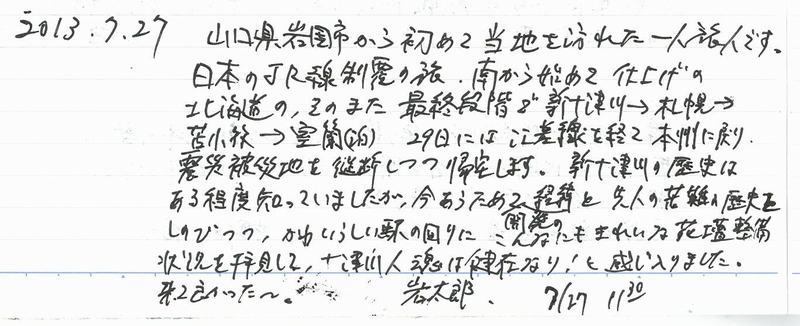 2013.7.27 山口県岩国市から初めて当地を訪れた一人旅人です。
日本のJR線制覇の旅.南から始めて仕上げの
北海道の、そのまた最終段階で新十津川→札幌→
苫小牧→室蘭(泊) 29日には江差線を経て本州に戻り.
震災被災地を縦断しつつ帰宅します。新十津川の歴史は
ある程度知っていましたが、今あらためて経緯と先人の苦難の歴史を
しのびつつ、かわいらしい駅の回りに こんなにもきれいな花壇整備
開発の
状況を拝見して、十津川人魂は健在なり!と感じ入りました。
来て良かった〜。 岩太郎. 7/27 11:30